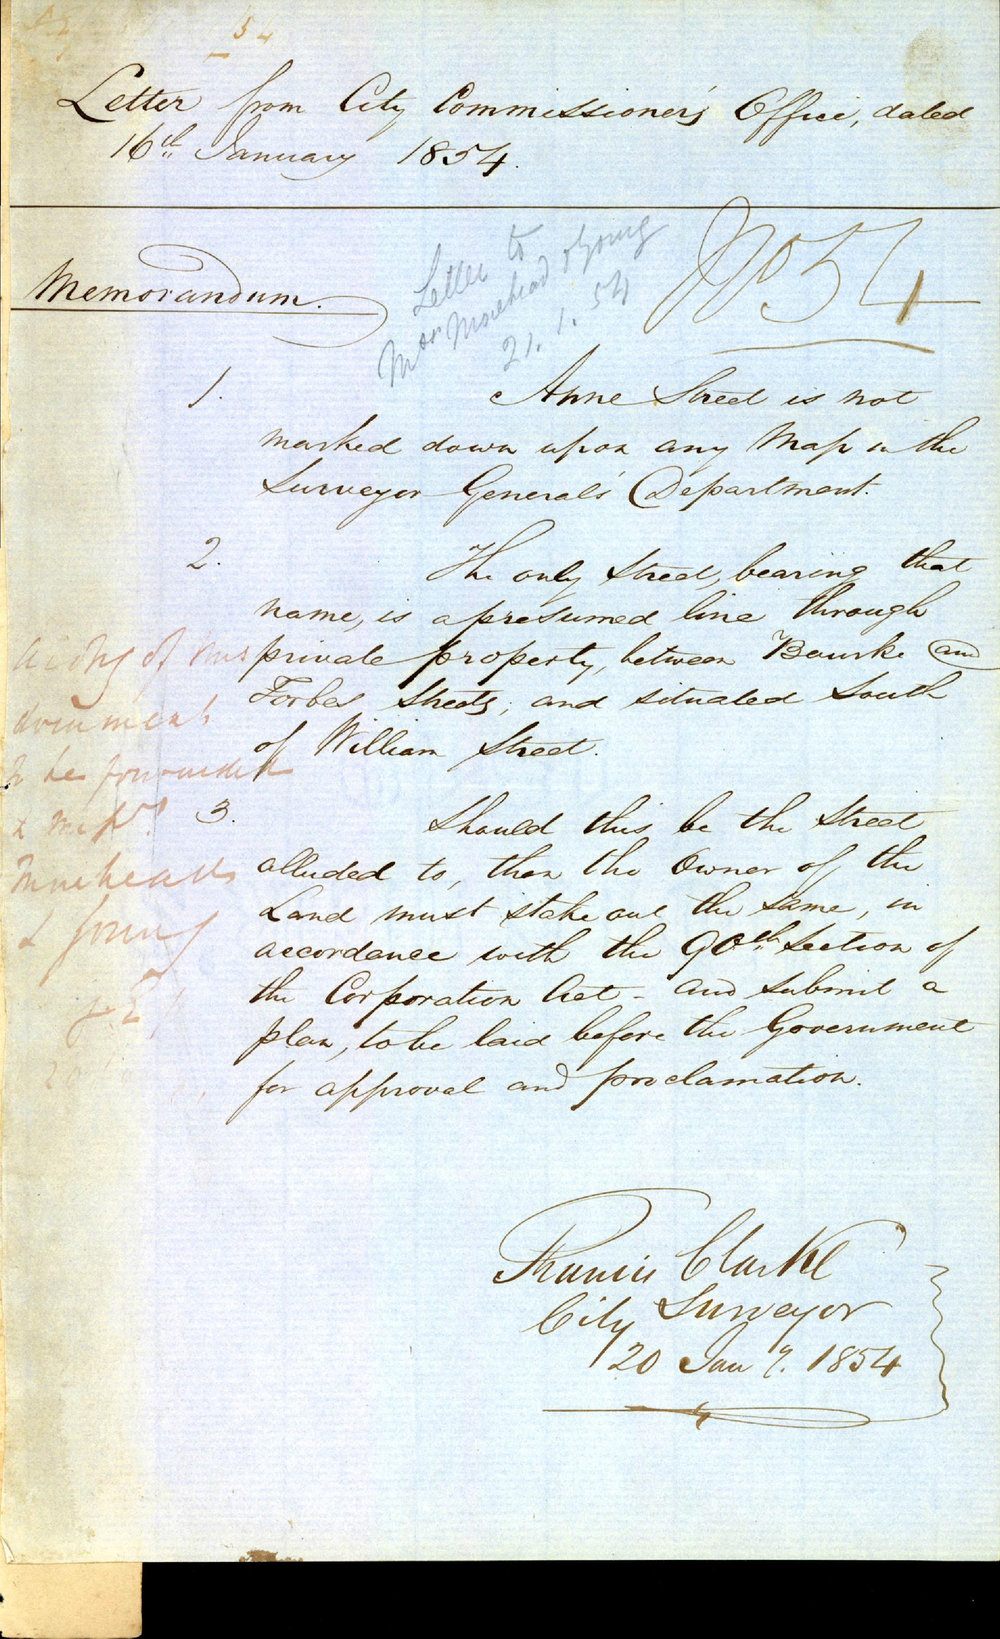 54
Letter from City Commissioner's Office, dated
16th January 1854.
No 54
Letter to
Messrs Morehead & Young
21.1.54
Memorandum.
1. Anne Street is not
marked down upon any Map in the
Surveyor General's Department.
2. The only Street, bearing that
name, is a presumed line through
private property, between Bourke and
Forbes Streets, and situated South
of William Street.
3. Should this be the Street
alluded to, then the Owner of the
Land must stake out the same, in
accordance with the 90th Section of
the Corporation Act - and submit a
plan, to be laid before the Government
for approval and proclamation.
A copy of this
document
to be forwarded
to Messrs
Moreheads
& Young
20
Francis Clarke
City Surveyor
20 Jany. 1854